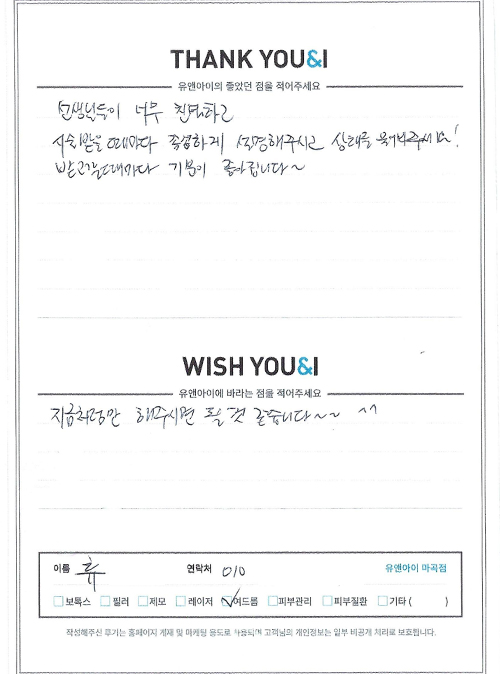 THANK YOU&I
유앤아이의 좋았던 점을 적어주세요
선생님들이 너무 친절하고
시술받을때마다 꼼꼼하게 설명해주시고 상태를 봐주세요!
받고갈때마다 기분이 좋아집니다~
WISH YOU&I
유앤아이에 바라는 점을 적어주세요
지금처럼만 해주시면 좋을 것 같습니다~~ ^^
이름 휴 연락처 010 유앤아이 마곡점
보톡스 필러 제모 레이저 여드름 피부관리 피부질환 기타 ( )
작성해주신 후기는 홈페이지 게재 및 마케팅 용도로 사용되며 고객님의 개인정보는 일부 비공개 처리로 보호됩니다.